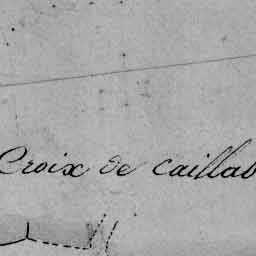 Croix de Caillab